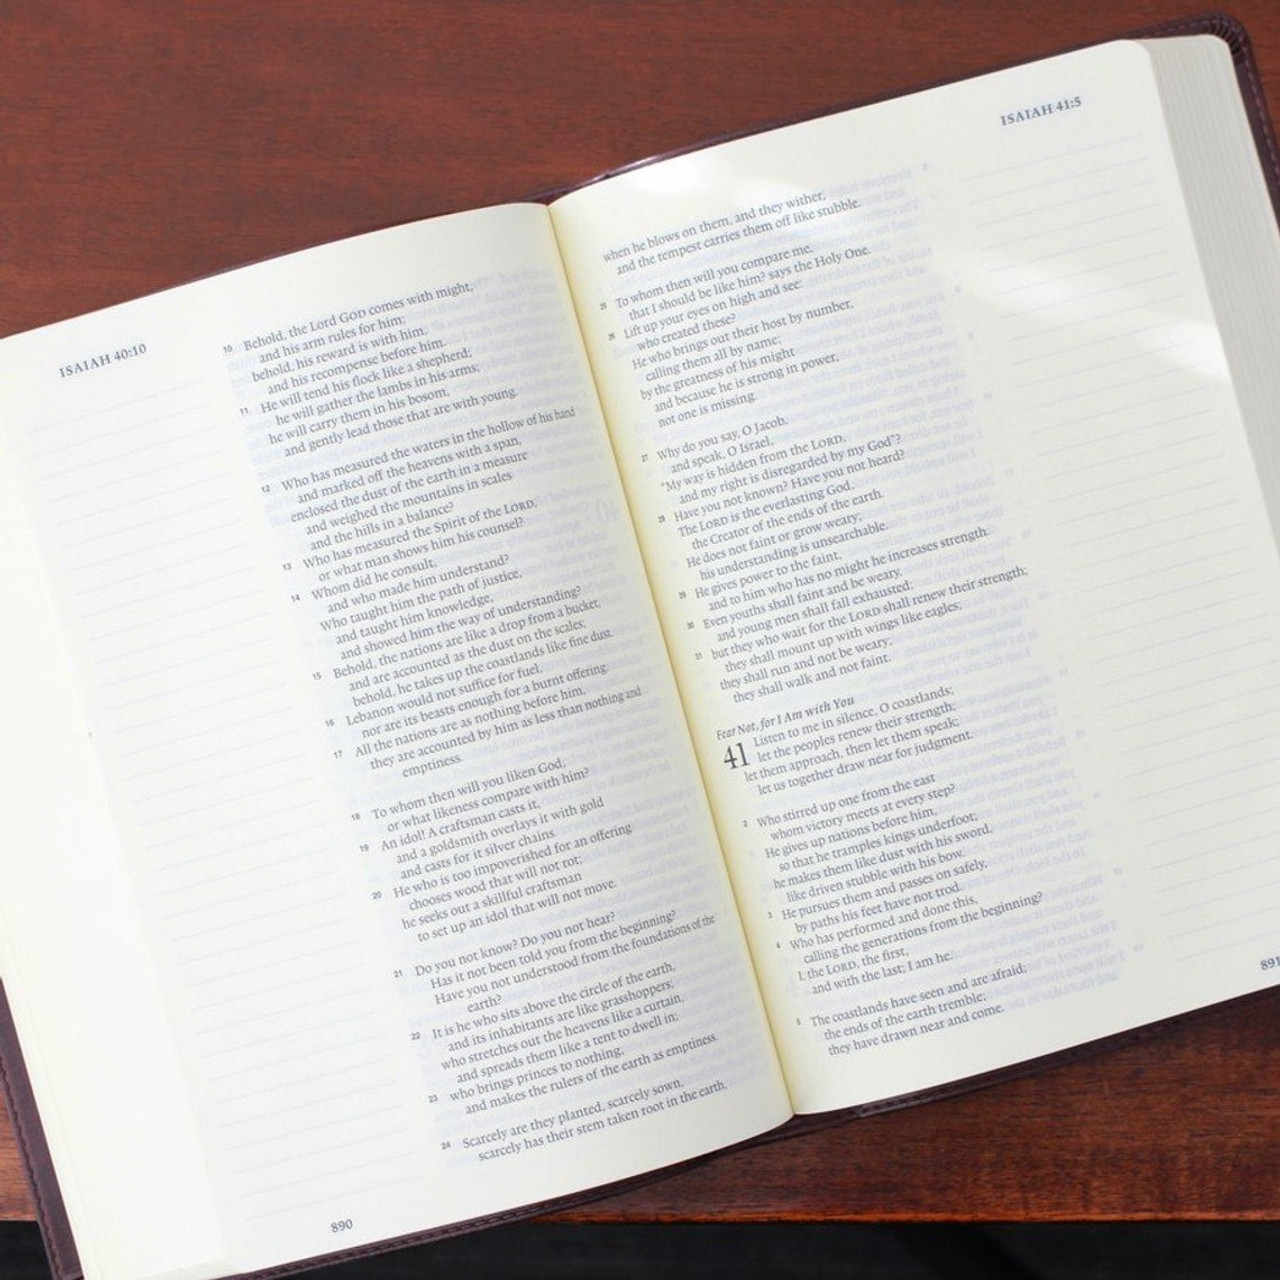 ISAIAH 40:10
10 Behold, the Lord GOD comes with might,
and his arm rules for him;
behold, his reward is with him,
and his recompense before him.
11 He will tend his flock like a shepherd;
he will gather the lambs in his arms;
he will carry them in his bosom,
and gently lead those that are with young.
12 Who has measured the waters in the hollow of his hand
and marked off the heavens with a span,
enclosed the dust of the earth in a measure
and weighed the mountains in scales
and the hills in a balance?
13 Who has measured the Spirit of the LORD,
or what man shows him his counsel?
14 Whom did he consult,
and who made him understand?
Who taught him the path of justice,
and taught him knowledge,
and showed him the way of understanding?
15 Behold, the nations are like a drop from a bucket,
and are accounted as the dust on the scales;
behold, he takes up the coastlands like fine dust.
16 Lebanon would not suffice for fuel,
nor are its beasts enough for a burnt offering.
17 All the nations are as nothing before him,
they are accounted by him as less than nothing and
emptiness.
18 To whom then will you liken God,
or what likeness compare with him?
19 An idol! A craftsman casts it,
and a goldsmith overlays it with gold
and casts for it silver chains.
20 He who is too impoverished for an offering
chooses wood that will not rot;
he seeks out a skillful craftsman
to set up an idol that will not move.
21 Do you not know? Do you not hear?
Has it not been told you from the beginning?
Have you not understood from the foundations of the
earth?
22 It is he who sits above the circle of the earth,
and its inhabitants are like grasshoppers;
who stretches out the heavens like a curtain,
and spreads them like a tent to dwell in;
23 who brings princes to nothing,
and makes the rulers of the earth as emptiness.
24 Scarcely are they planted, scarcely sown,
scarcely has their stem taken root in the earth,
890
ISAIAH 41:5
when he blows on them, and they wither,
and the tempest carries them off like stubble.
25 To whom then will you compare me,
that I should be like him? says the Holy One.
26 Lift up your eyes on high and see:
who created these?
He who brings out their host by number,
calling them all by name;
by the greatness of his might
and because he is strong in power,
not one is missing.
27 Why do you say, O Jacob,
and speak, O Israel,
"My way is hidden from the LORD,
and my right is disregarded by my God"?
28 Have you not known? Have you not heard?
The LORD is the everlasting God,
the Creator of the ends of the earth.
He does not faint or grow weary;
his understanding is unsearchable.
29 He gives power to the faint,
and to him who has no might he increases strength.
30 Even youths shall faint and be weary,
and young men shall fall exhausted;
31 but they who wait for the LORD shall renew their strength;
they shall mount up with wings like eagles;
they shall run and not be weary;
they shall walk and not faint.
Fear Not, for I Am with You
41 Listen to me in silence, O coastlands;
let the peoples renew their strength;
let them approach, then let them speak;
let us together draw near for judgment.
2 Who stirred up one from the east
whom victory meets at every step?
He gives up nations before him,
so that he tramples kings underfoot;
he makes them like dust with his sword,
like driven stubble with his bow.
3 He pursues them and passes on safely,
by paths his feet have not trod.
4 Who has performed and done this,
calling the generations from the beginning?
I, the LORD, the first,
and with the last; I am he.
5 The coastlands have seen and are afraid;
the ends of the earth tremble;
they have drawn near and come.
891